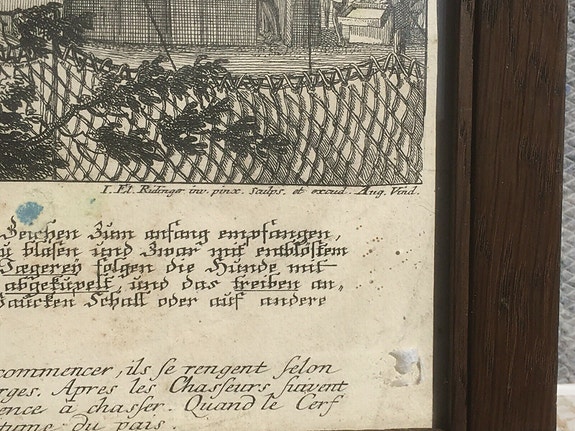 I. El. Ridinger inv. pinx. sculps. et excud. Aug. Vind.
Zeichen zum anfang empfangen,
zu blasen und zwar mit entblöstem
Jægerey folgen die Hunde mit
abgekupelt, und das treiben an-
Paucken Schall oder auf andere
commencer, ils se rengent selon
rges. Apres les Chasseurs suivent
ence à chasser. Quand le Cerf
tume du pais.